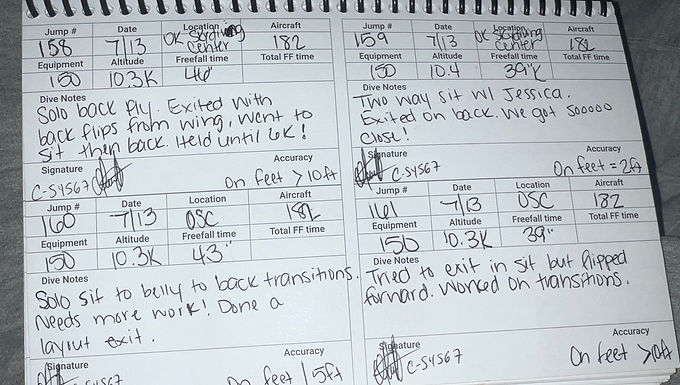 Jump # Date Location Aircraft
158 7/13 OK Skydiving Center 182
Equipment Altitude Freefall time Total FF time
150 10.3K
Dive Notes
Solo back fly. Exited with
back flips from wing, went to
sit then back. Held until 6K!
Signature Accuracy
C-54567 On feet >10ft
Jump # Date Location Aircraft
159 7/13 OK Skydiving Center 182
Equipment Altitude Freefall time Total FF time
150 10.4 39"
Dive Notes
Two way sit w/ Jessica.
Exited on back. We got sooooo
close!
Signature Accuracy
C-54567 On feet = 2ft
Jump # Date Location Aircraft
160 7/13 OSC 182
Equipment Altitude Freefall time Total FF time
150 10.3K 43"
Dive Notes
Solo sit to belly to back transitions.
Needs more work! Done a
layout exit.
Signature Accuracy
C-54567 On feet 15ft
Jump # Date Location Aircraft
161 7/13 OSC 182
Equipment Altitude Freefall time Total FF time
150 10.3K 39"
Dive Notes
Tried to exit in sit but flipped
forward. Worked on transitions.
Signature Accuracy
C-54567 On feet >10ft